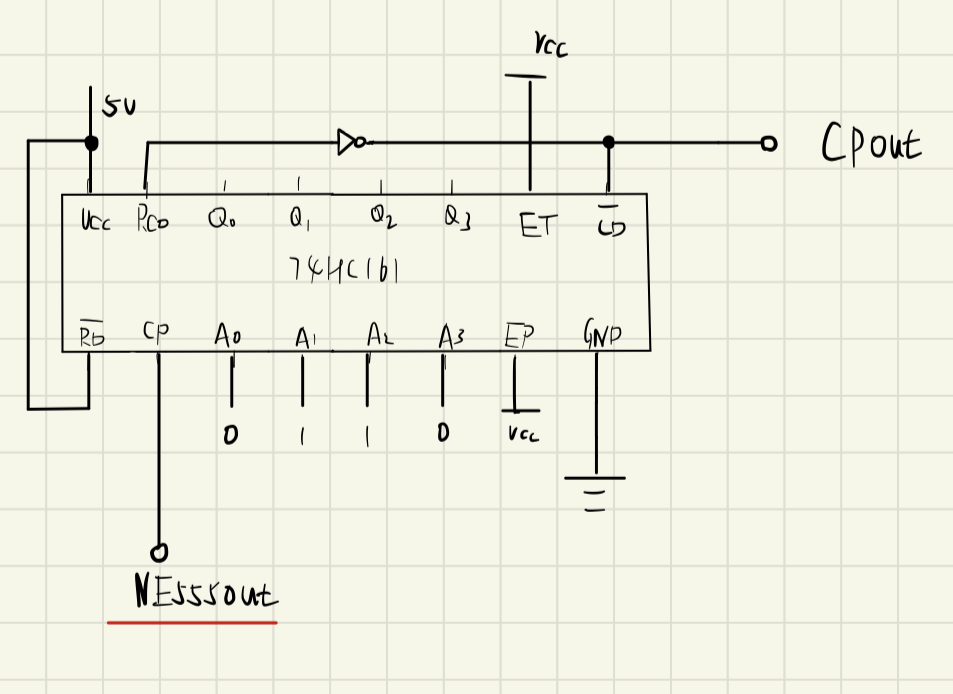 Vcc
5V
CPout
Vcc RCO Q0 Q1 Q2 Q3 ET L̅D̅
74HC161
R̅D̅ CP A0 A1 A2 A3 EP GND
0 1 1 0 Vcc
NE555out